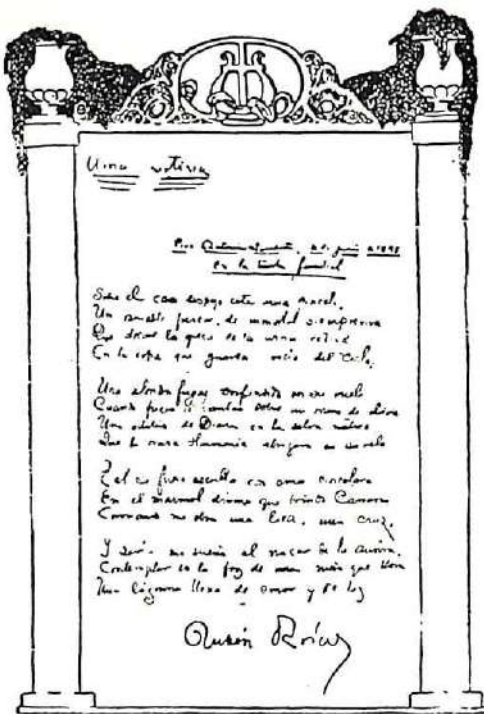 Urna votiva
en la tumba
Sobre el caro despojo esta urna cincelo,
Un amable frescor de inmortal siempreviva
Que decore la greca de la urna votiva
En la copa que guarda rocio del cielo;
Una alondra fugaz sorprendida en su vuelo
Cuando fuera a cantar sobre un ramo de oliva
Una estatua de Diana en la selva nativa
Que la Harmonia en su velo
Tal si fuera escultor con amor cincelara
En el marmol divino que brinda Carrara
Coronando mi obra una lira, una cruz,
Y seria mi sueño al nacer de la aurora,
Contemplar en la faz de una niña que llora
Una lágrima llena de amor y de luz
Rubén Darío